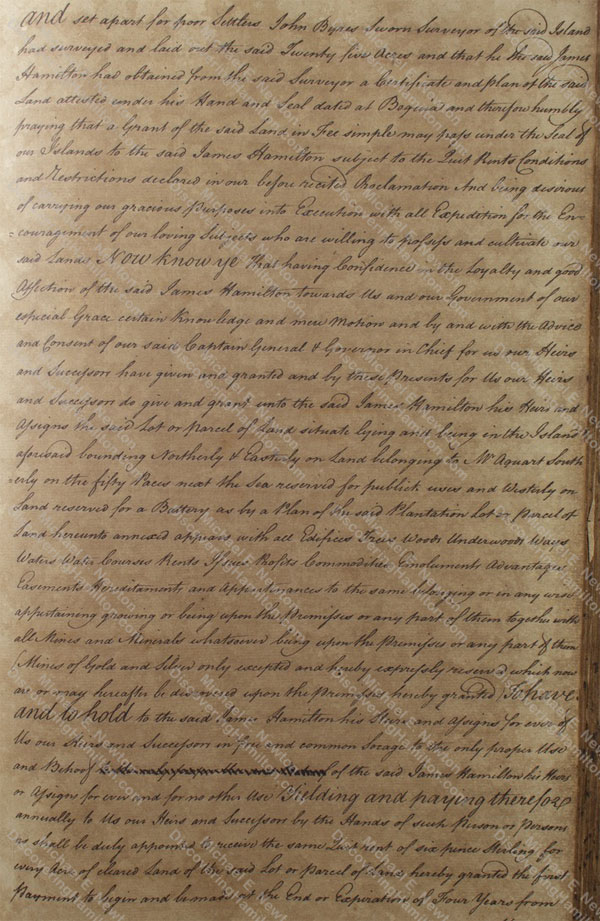 and set apart for poor Settlers John Byres Sworn Surveyor of the said Island
had surveyed and laid out the said Twenty five Acres and that he the said James
Hamilton had obtained from the said Surveyor a Certificate and plan of the said
Land attested under his Hand and Seal dated at Bequia and therefore humbly
praying that a Grant of the said Land in Fee simple may pass under the Seal of
our Islands to the said James Hamilton subject to the Quit Rents Conditions
and Restrictions declared in our before recited Proclamation And being desirous
of carrying our gracious Purposes into Execution with all Expedition for the En-
=couragement of our loving Subjects who are willing to possess and cultivate our
said Lands Now know ye That having Confidence in the Loyalty and good
Affection of the said James Hamilton towards Us and our Government of our
especial Grace certain Knowledge and meer Motion and by and with the Advice
and Consent of our said Captain General & Governor in Chief for us our Heirs
and Successors have given and granted and by these Presents for Us our Heirs
and Successors do give and grant unto the said James Hamilton his Heirs and
Assigns the said Lot or Parcel of Land situate lying and being in the Island
aforesaid bounding Northerly & Easterly on Land belonging to Mr Aquart South
=erly on the fifty Paces next the Sea reserved for publick uses and Westerly on
Land reserved for a Battery as by a Plan of the said Plantation Lot or Parcel of
Land hereunto annexed appears with all Edifices Trees Woods Underwoods Ways
Waters Water Courses Rents Issues Profits Commodities Emoluments Advantages
Easements Hereditaments and Appurtenances to the same belonging or in any wise
appertaining growing or being upon the Premisses or any part of them together with
all Mines and Minerals whatsoever being upon the Premisses or any part of them
(Mines of Gold and Silver only excepted and hereby expressly reserved which now
are or may hereafter be discovered upon the Premisses hereby granted) To have
and to hold to the said James Hamilton his Heirs and Assigns for ever of
Us our Heirs and Successors in free and common Socage to the only proper Use
and Behoof of the said James Hamilton his Heirs
or Assigns for ever and for no other Use Yielding and paying therefore
annually to Us our Heirs and Successors by the Hands of such Person or Persons
as shall be duly appointed to receive the same Quit rent of six pence Sterling for
every Acre of cleared Land of the said Lot or Parcel of Land hereby granted the first
Payment to begin and be made at the End or Expiration of Four Years from
Michael E. Newton
DiscoveringHamilton.com